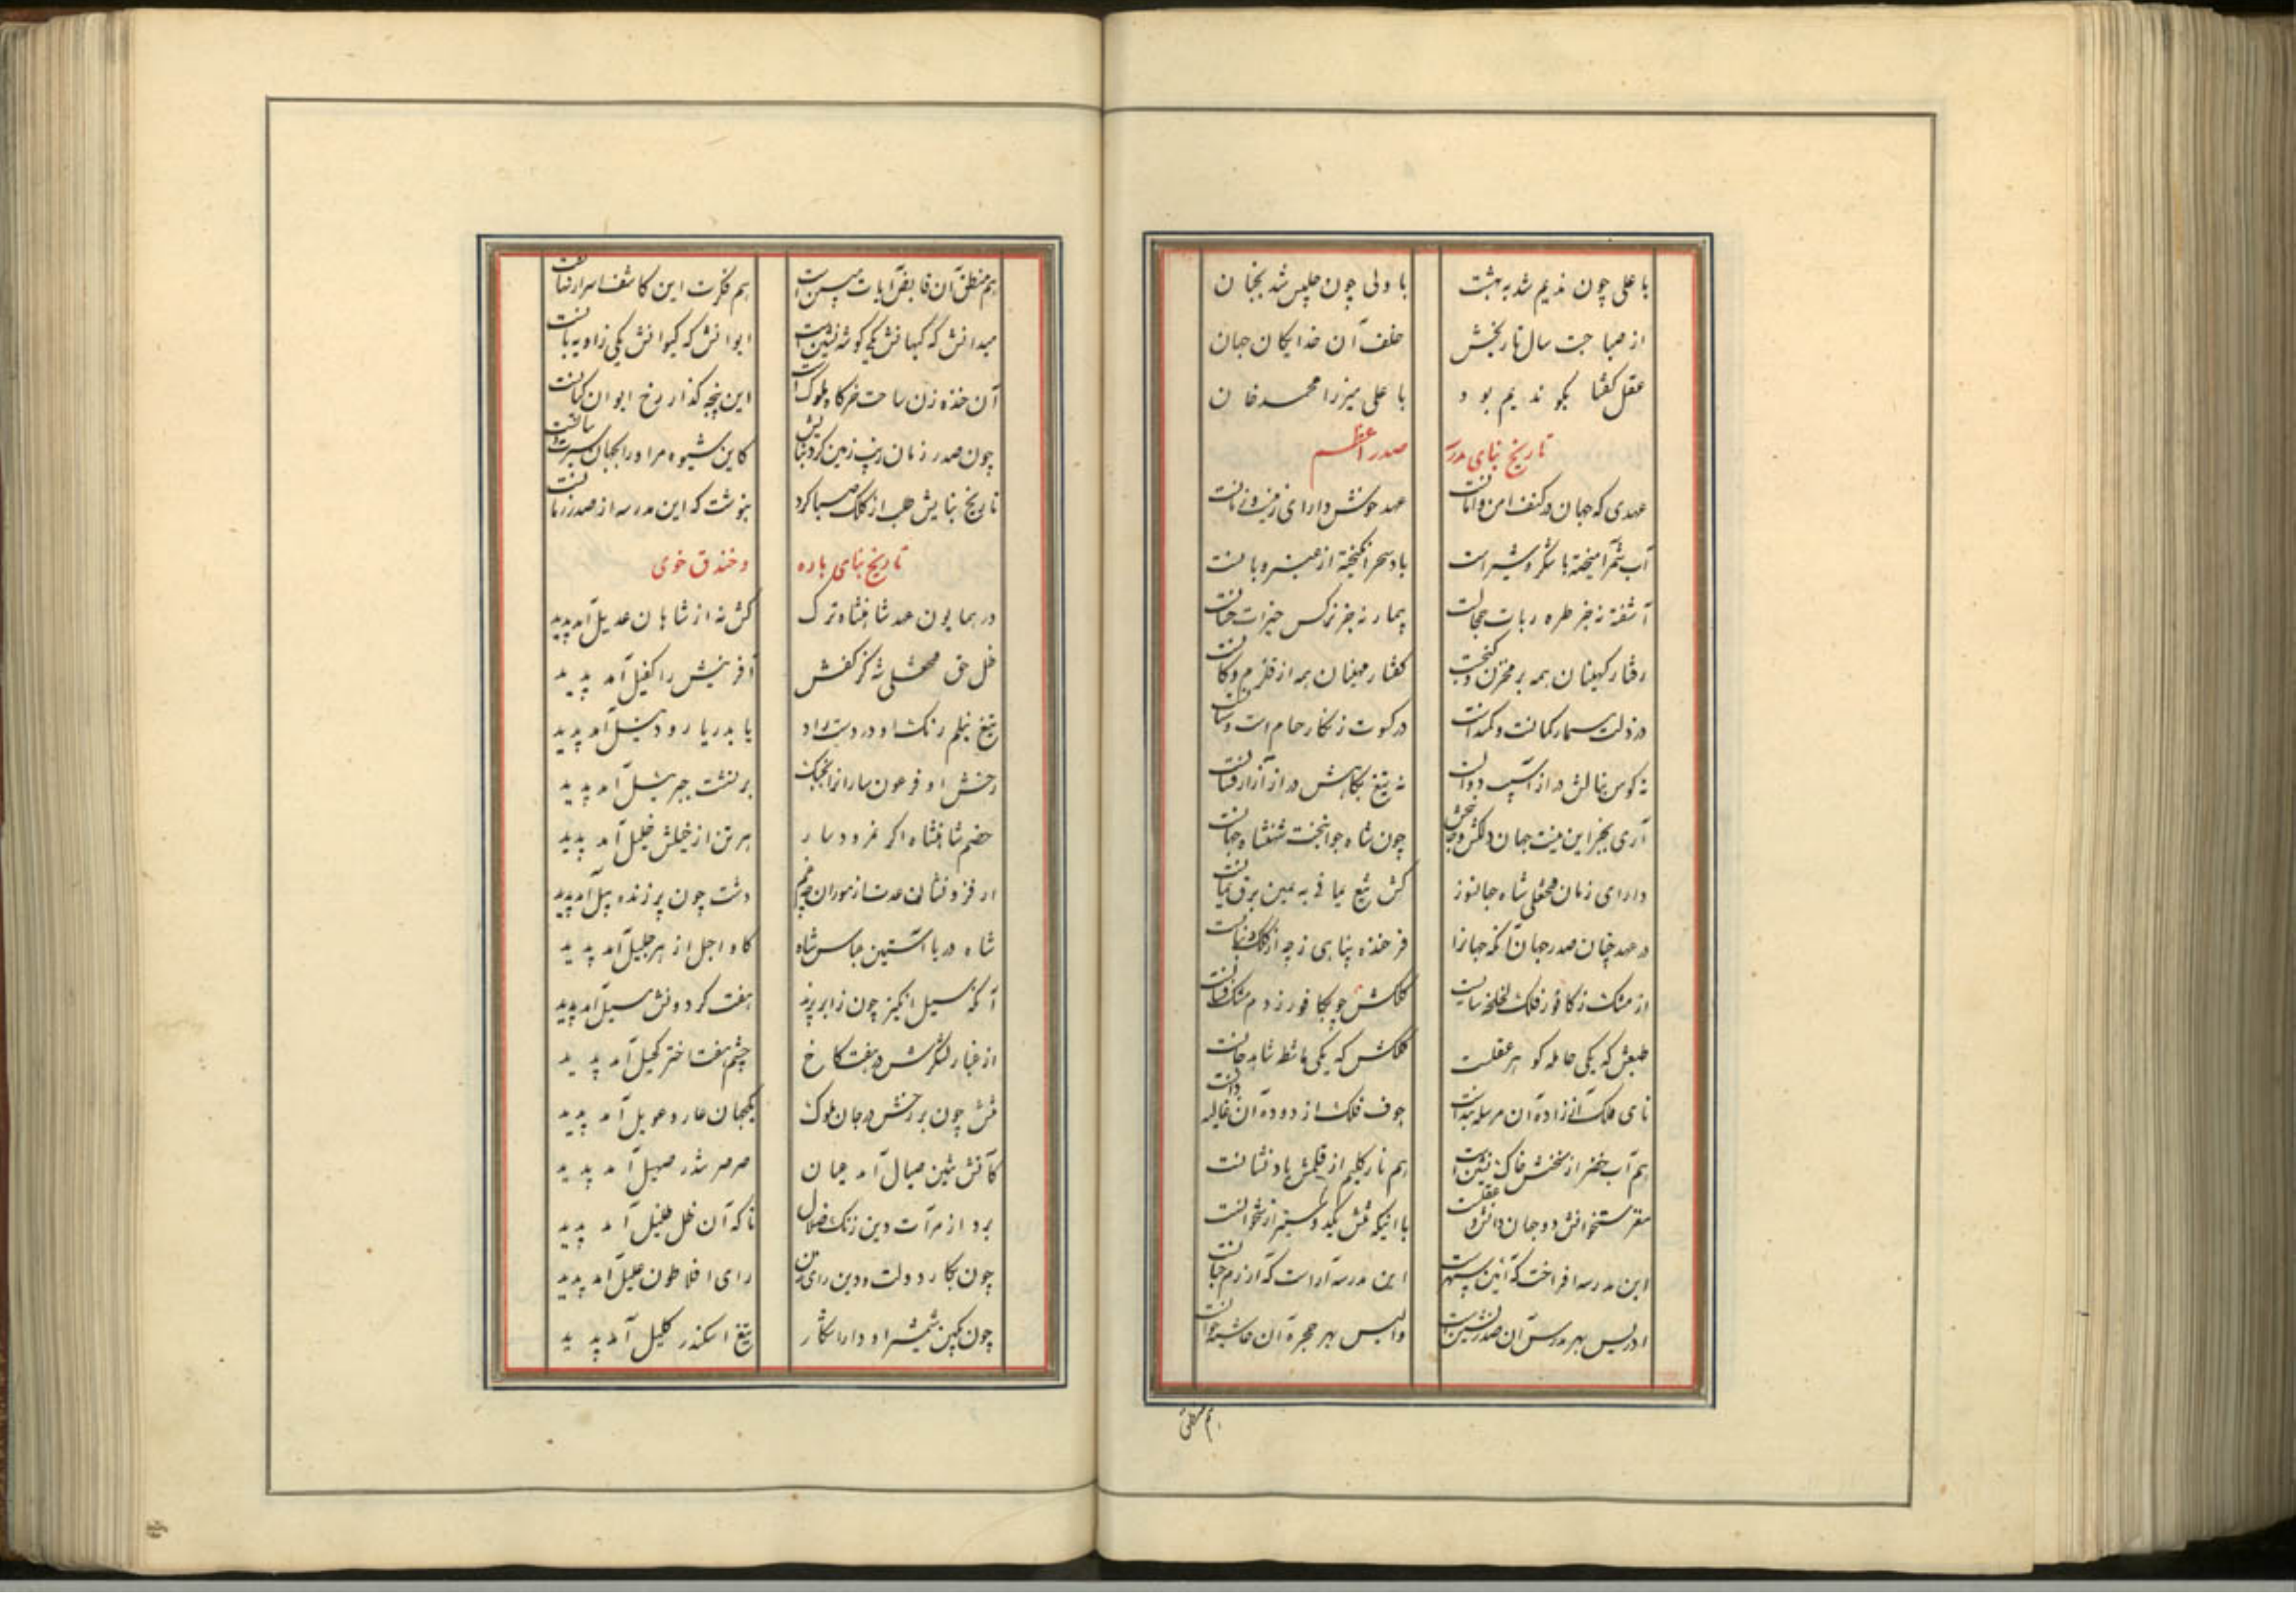 با علی چون ندیم شد به بهشت
با ولی چون جلیس شد بجنان
از صبا جست سال تاریخش
خلف آن خدایکان جهان
عقل کفتا بکو ندیم بود
با علی میرزا محمد خان
تاریخ بنای مدرسه
صدر اعظم
عهدی که جهان در کنف امن و امانست
عهد خوش دارای زمین و زمانست
آب شمر آمیخته با شکر و شیر است
باد سحر انکیخته از عنبر و بانست
آشفته نه جز طره ربات حجالست
بیمار نه جز نرکس خیرات حسانست
رفتار کهینان همه بر مخزن و کنجست
کفتار مهینان همه از قلزم و کانست
در ذلت مسمار کمانست و کمند است
در کسوت زنکار حسام است و سنانست
نه کوس بنالش در از آسیب دوالست
نه تیغ بکاهش در از آزار فسانست
آری بجز این نیست جهان دلکش و جانبخش
چون شاه جوانبخت شهنشاه جهانست
دارای زمان فتحعلی شاه جهانسوز
کش تیغ یمانی به یمین برق یمانست
در عهد چنان صدر جهان آنکه جهانرا
فرخنده پناهی زچه از کلک و بنانست
از مشک ز کافور فلک لخلخه سایست
کلکش چو بکافور زد دم مشک فشانست
طبعش که یکی حامله کو هر عقلست
کلکش که یکی ماشطه شاهد جانست
نای ملک از زاده آن مرسله بند است
جوف فلک از دوده آن غالیه دانست
هم آب خضر از سخنش خاک نشین است
هم نار کلیم از قلمش باد نشانست
مغز ستخوانش دو جهان دانش و عقلست
با اینکه تنش یکدو سه تیر از ستخوانست
این مدرسه افراخت که آئین سپهر است
این مدرسه آراست که از رم جنانست
ادریس بهر مدرس آن صدرنشین است
والیس بهر حجره آن حاشیه خوانست
هم منطق
هم منطق آن فایض آیات مبین است
هم فکرت این کاشف اسرار نهانست
میدانش که کیهانش یکی کوشه نشین است
ایوانش که کیوانش یکی زاویه بانست
آن خنده زن ساحت خرکاه ملوک است
این پنجه کذار رخ ایوان کیانست
چون صدر زمان زیب زمین کرد بنایش
کاین شیوه مر او را بجهان سیرت و سانست
تاریخ بنایش طلب از کلک صبا کرد
بنوشت که این مدرسه از صدر زمانست
تاریخ بنای باره
و خندق خوی
در همایون عهد شاهنشاه ترک
کش نه از شاهان عدیل آمد پدید
ظل حق فتحعلی شه کز کفش
آفرینش را کفیل آمد پدید
تیغ نیلم رنک او در دست راد
یا بدریا رود نیل آمد پدید
رخش او فرعون سارانرا بجنک
بر نشست جبرئیل آمد پدید
خصم شاهنشاه اکر نمرود سار
هر تن از خیلش خلیل آمد پدید
ار فزونشان عدت از موران خصم
دشت چون پر زنده پیل آمد پدید
شاه دریا آستین عباس شاه
کاو اجل از هر جلیل آمد پدید
آنکه سیل انکیز چون ز ابر پرند
هفت کردونش سبیل آمد پدید
از غبار لشکرش در هفت کاخ
چشم هفت اختر کحیل آمد پدید
تنش چون بر رخش در جان ملوک
یکجهان عار و عویل آمد پدید
کآتشین صیال آمد عیان
صرصر تندر صهیل آمد پدید
برد از مرآت دین زنک ضلال
تا که آن ظل ظلیل آمد پدید
چون بکار دولت و دین رای زن
رای افلاطون علیل آمد پدید
چون بکین شمشیر او دارا شکار
تیغ اسکندر کلیل آمد پدید